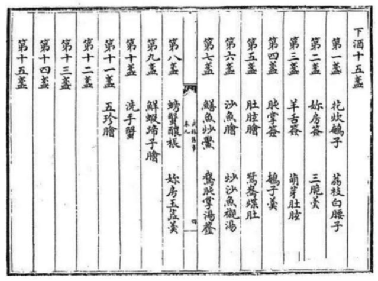 下酒十五盞
第一盞 花炊鵪子 荔枝白腰子
第二盞 妳房簽 三脆羹
第三盞 羊舌簽 萌芽肚胘
第四盞 肫掌簽 鵪子羹
第五盞 肚胘膾 鴛鴦煠肚
第六盞 沙魚膾 炒沙魚襯湯
第七盞 鱔魚炒鱟 鵞肫掌湯虀
卷九
第八盞 螃蟹釀棖 妳房玉蕊羹
第九盞 鮮蝦蹄子膾
第十盞 洗手蟹
第十一盞 五珍膾
第十二盞
第十三盞
第十四盞
第十五盞